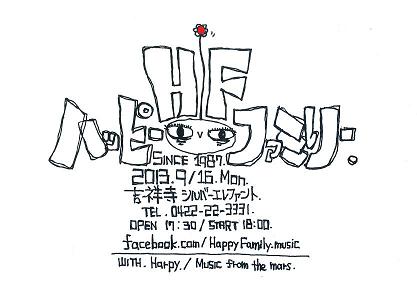 HF
ハッピーファミリー.
SINCE 1987.
2013.9/16.Mon.
吉祥寺 シルバーエレファント.
TEL. 0422-22-3331.
OPEN 17:30/START 18:00.
facebook.com/HappyFamily.music
WITH. Harpy./Music from the mars.